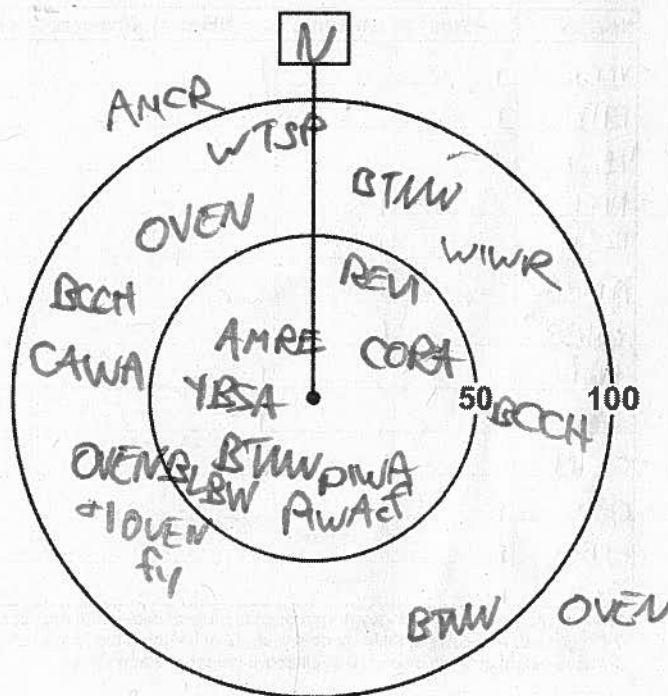 N
AMCR
WTSP
BTNW
OVEN
WIWR
REVI
BCCH
AMRE
CORA
CAWA
YBSA
50
100
BCCH
OVEN
BLBW
BTNW
PIWA
+1 OVEN
fly
PIWA♂
BTNW
OVEN